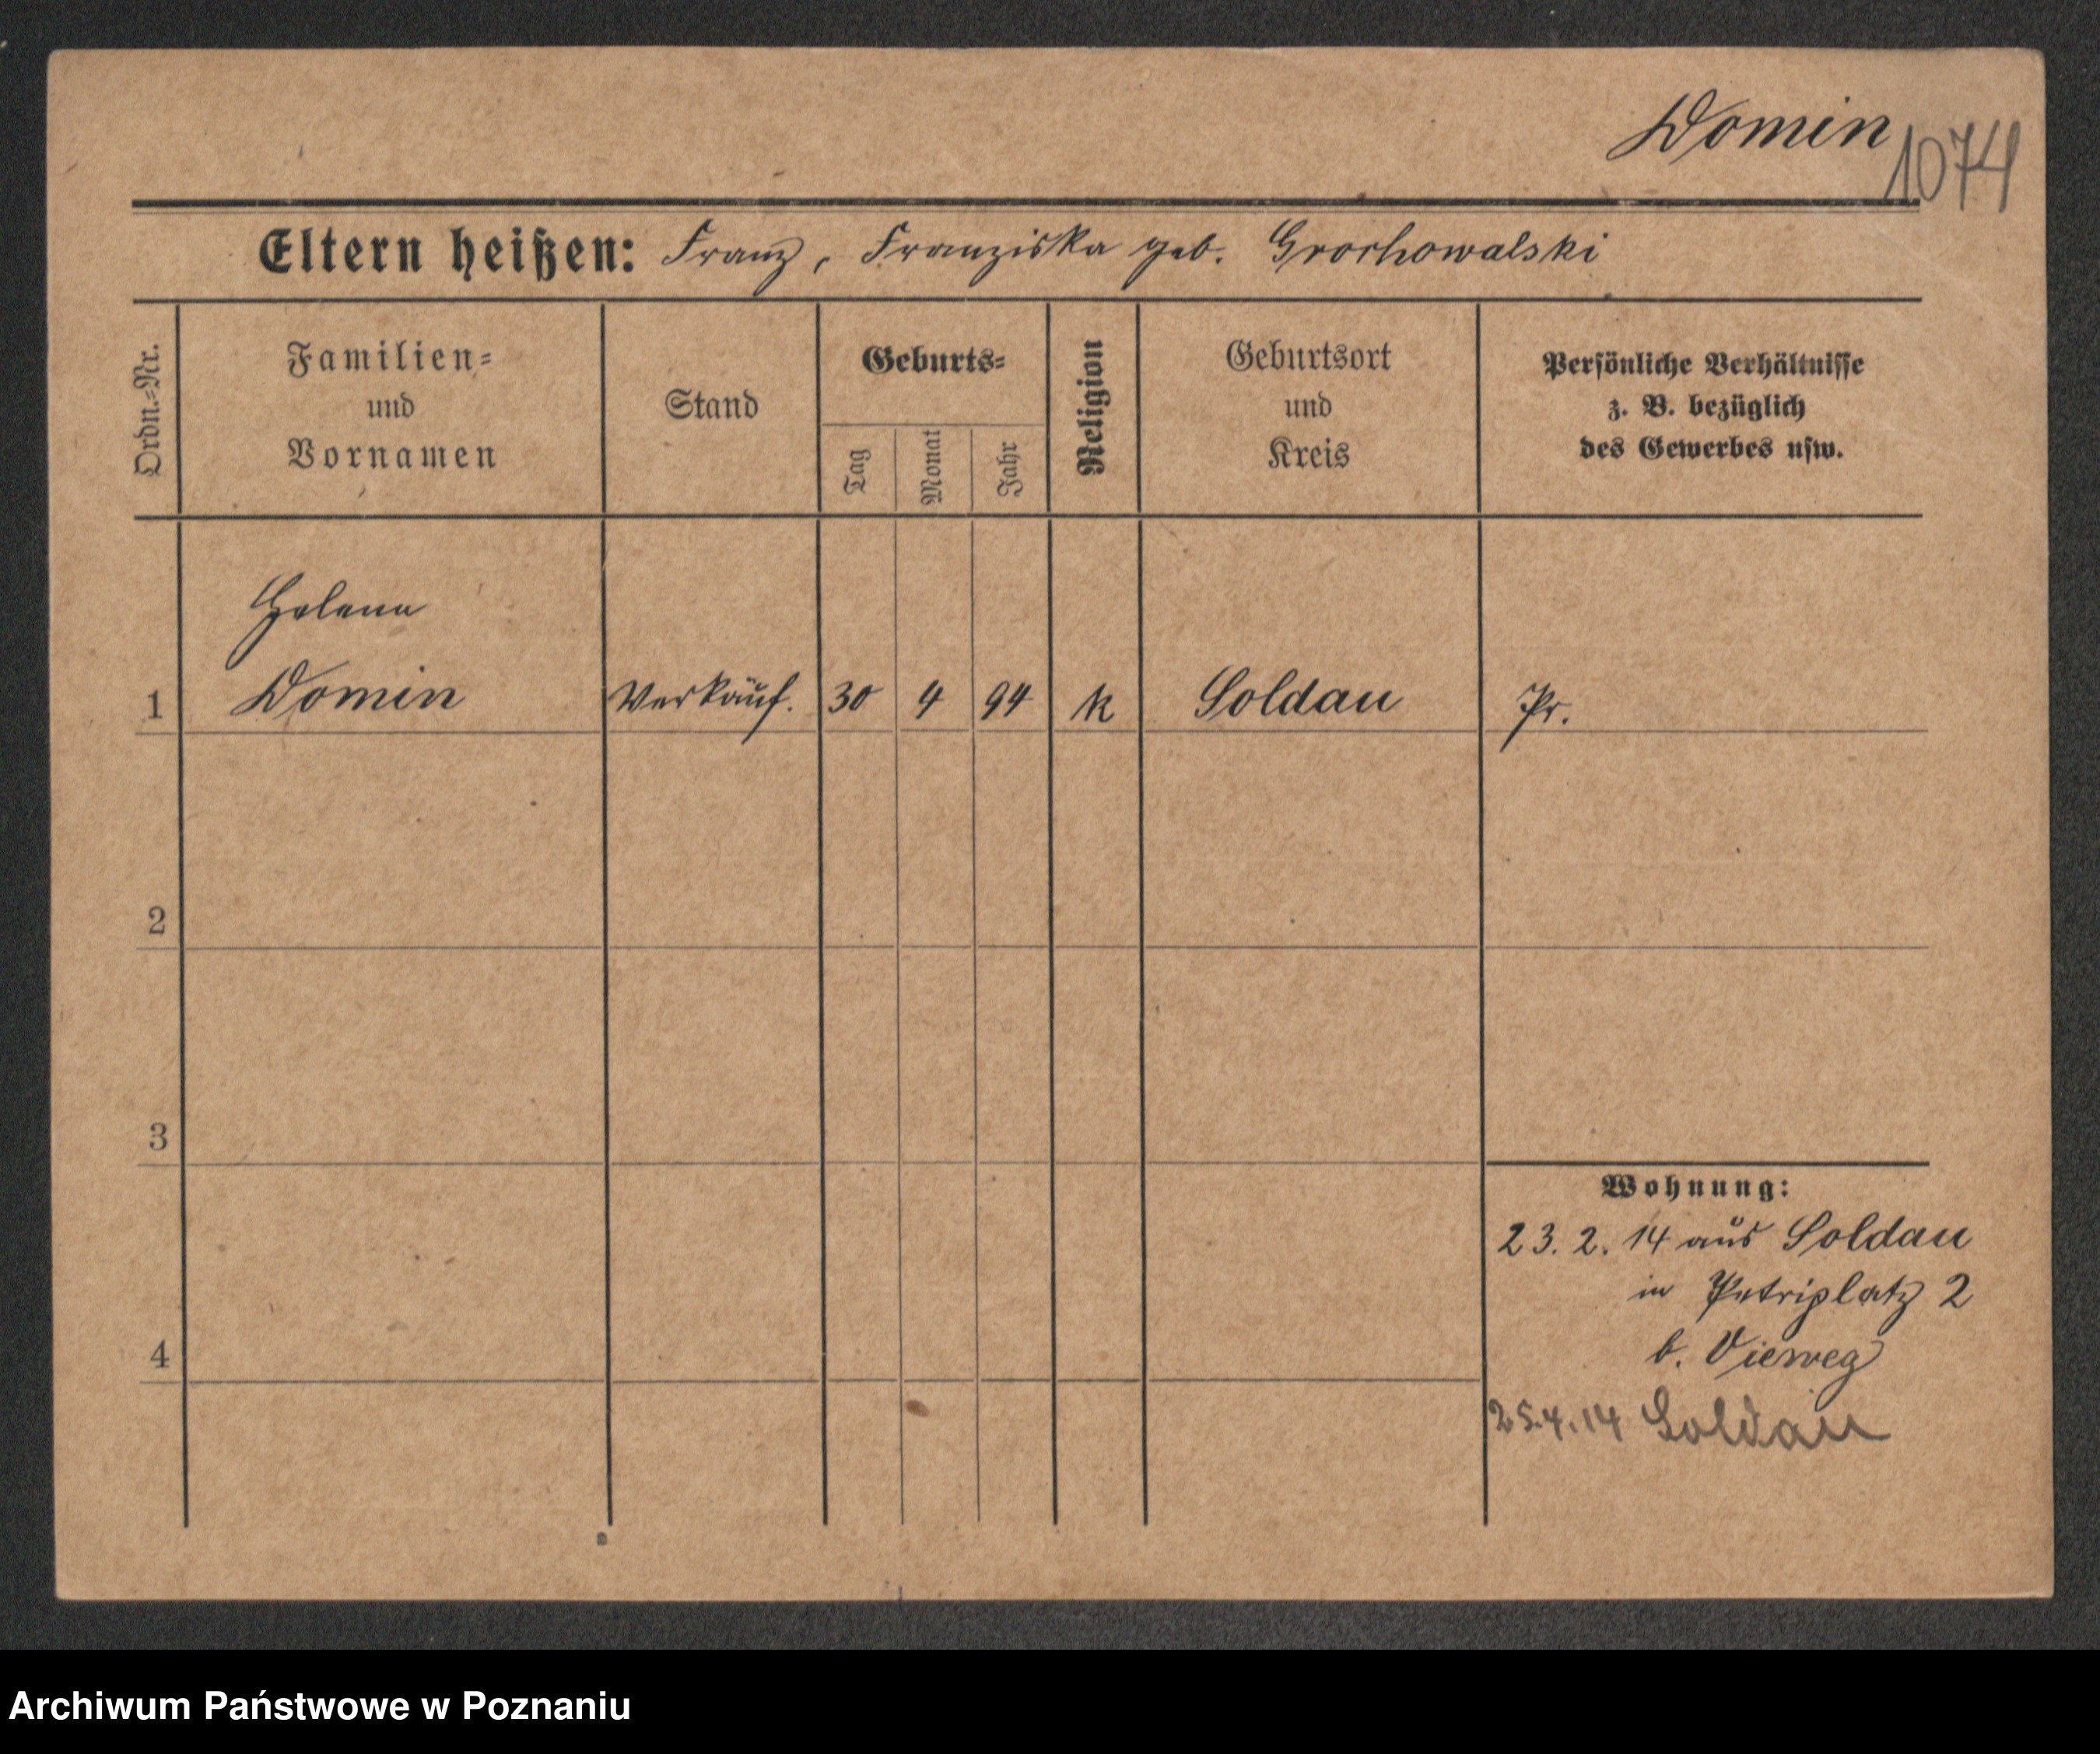 Domin
1074
Eltern heißen: Franz, Franziska geb. Grochowalski
Ordn.=Nr.
Familien=
und
Vornamen
Stand
Geburts=
Tag
Monat
Jahr
Religion
Geburtsort
und
Kreis
Persönliche Verhältnisse
z. B. bezüglich
des Gewerbes usw.
Helene
1 Domin Verkäuf. 30 4 94 k Soldau Pr.
2
3
4
Wohnung:
23. 2. 14 aus Soldau
in Petriplatz 2
b. Vieweg
25.4.14 Soldau
Archiwum Państwowe w Poznaniu